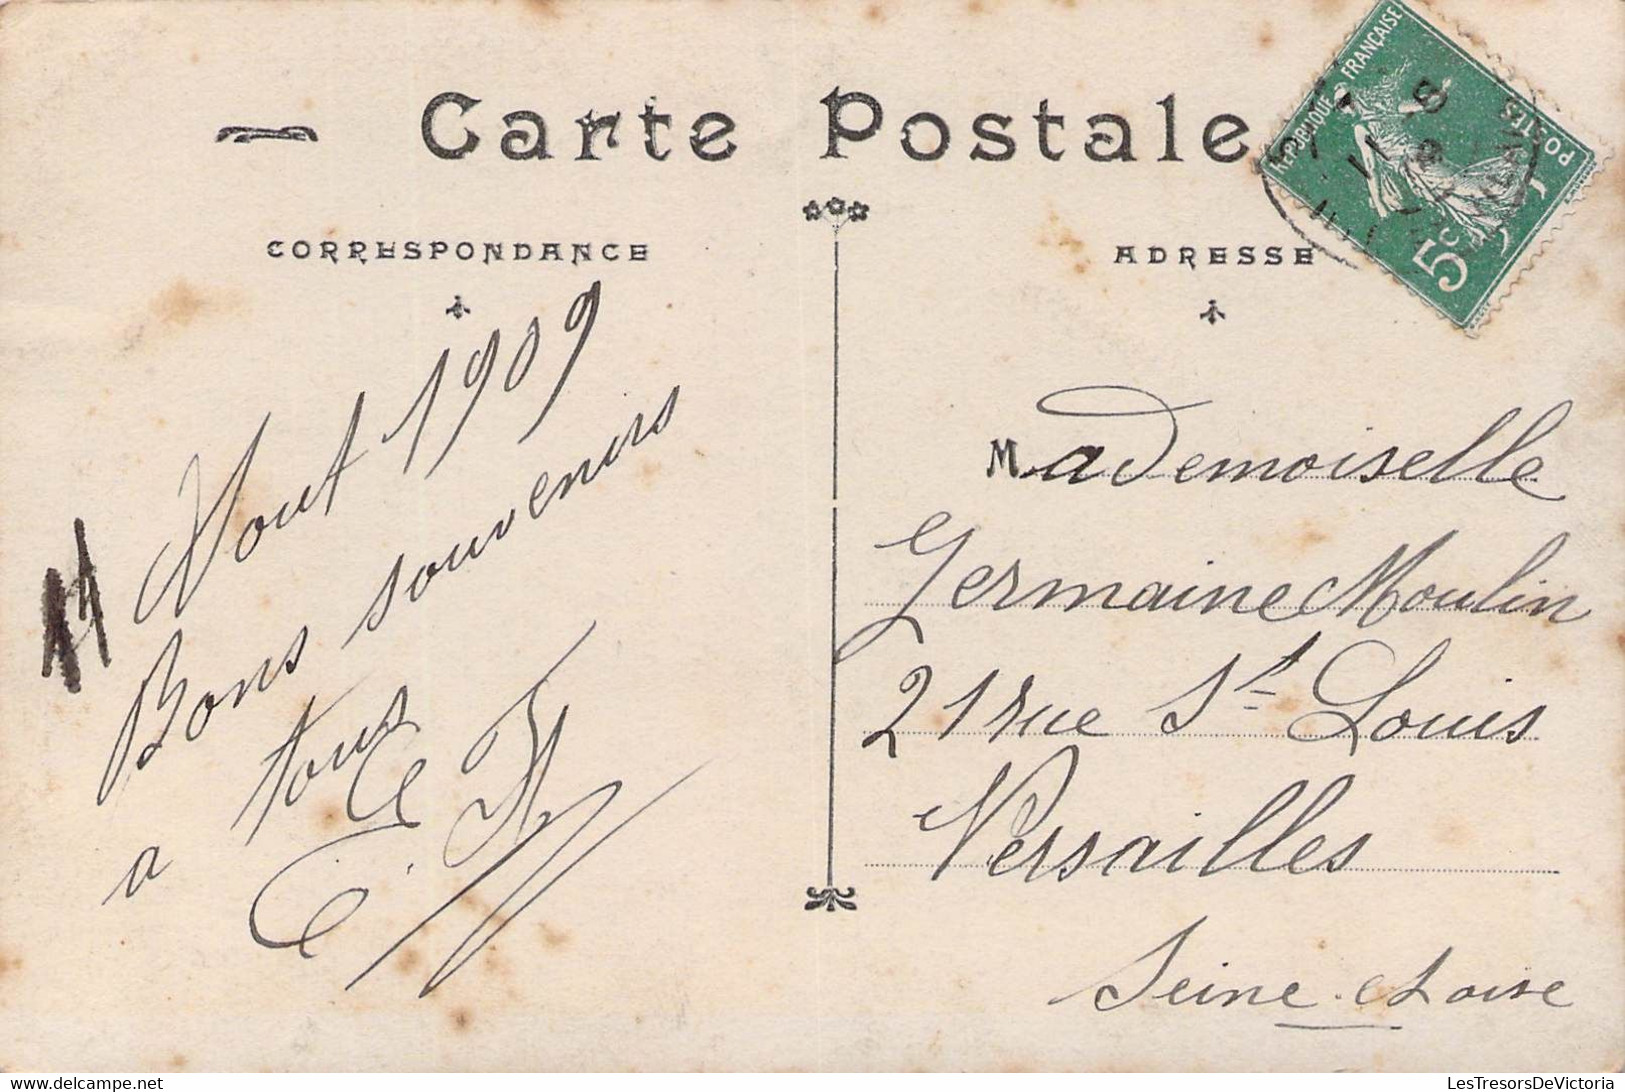 Carte Postale
CORRESPONDANCE
11 Aout 1909
Bons souvenirs
a tous
ADRESSE
REPUBLIQUE FRANÇAISE
POSTES
5c
Mademoiselle
Germaine Moulin
21 rue St Louis
Versailles
Seine et Oise
LesTresorsDeVictoria
delcampe.net